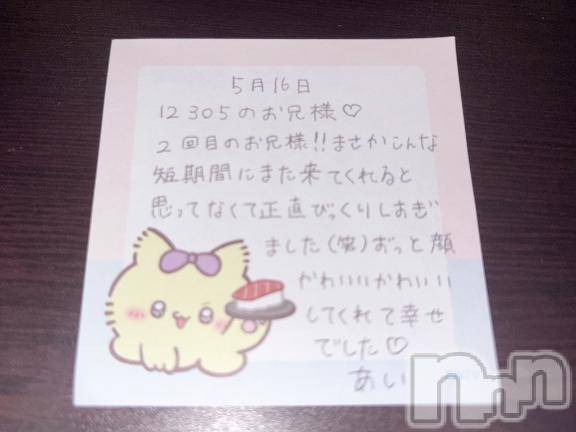 5月16日
12305のお兄様♡
2回目のお兄様!!まさかこんな
短期間にまた来てくれると
思ってなくて正直びっくりしすぎ
ました(笑)ずっと顔
かわいいかわいい
してくれて幸せ
でした♡
あい
nnn